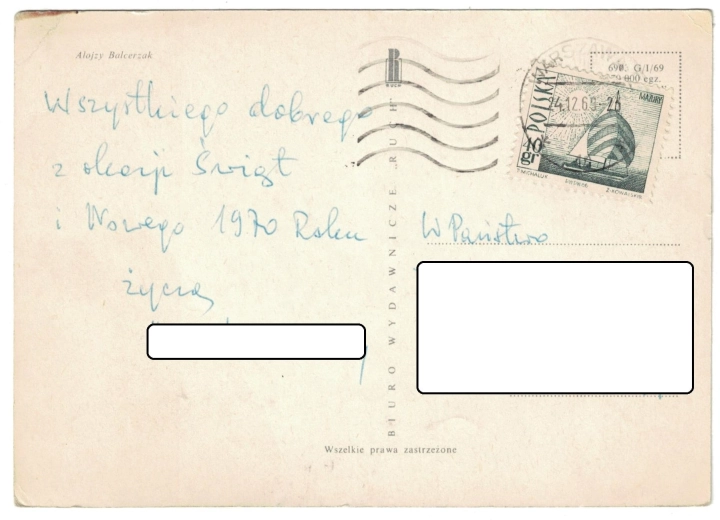 Alojzy Balcerzak
Wszystkiego dobrego
z okazji Świąt
i Nowego 1970 Roku
życzą
BIURO WYDAWNICZE „RUCH”
RUCH
G/I/69
000 egz.
WARSZAWA
24.12.69-26
POLSKA
MAZURY
40 gr
W Państwo
Wszelkie prawa zastrzeżone